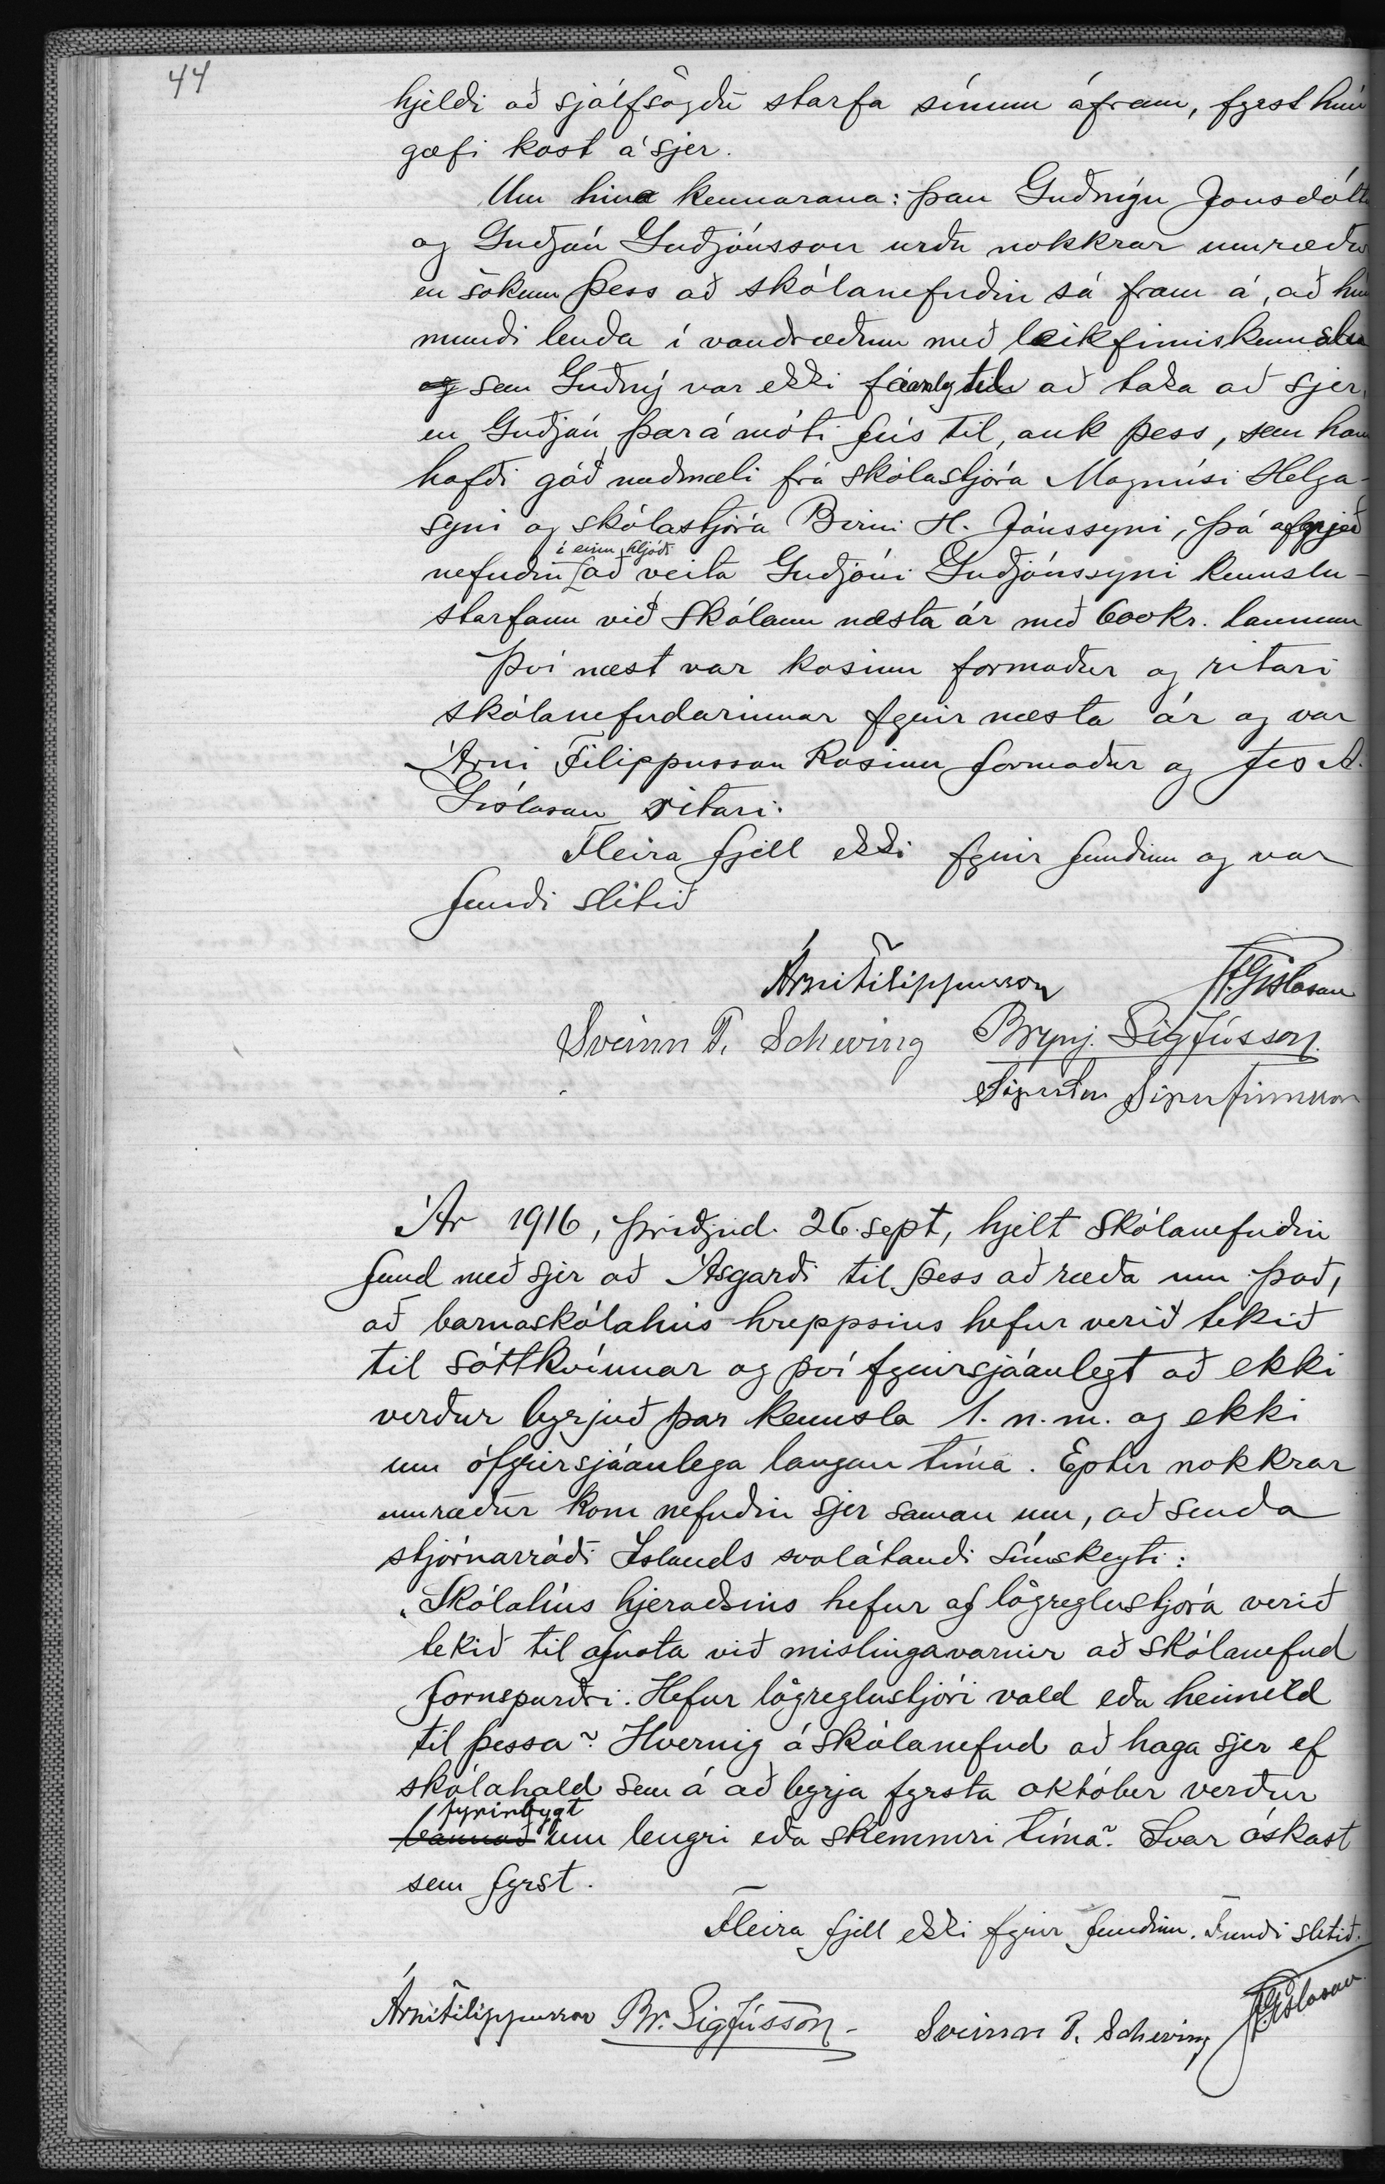 44
hjeldi að sjálfsögðu starfa sínum áfram, fyrst hún
gæfi kost á sjer.
Um hina kennarana: þau Guðnýju Jónsdótt
og Guðjón Guðjónsson urðu nokkrar umræður
en sökum þess að skólanefndin sá fram á, að hún
mundi lenda í vandræðum með leikfimiskennslu
og sem Guðný var ekki fáanleg til að taka að sjer,
en Guðjón þar á móti fús til, auk þess, sem hann
hafði góð meðmæli frá skólastjóra Magnúsi Helga-
syni og skólastjóra Birni H. Jónssyni, þá afgrjeð
í einu hljóði
nefndin að veita Guðjóni Guðjónssyni kennslu-
starfann við skólann næsta ár með 600 kr. launum
Því næst var kosinn formaður og ritari
skólanefndarinnar fyrir næsta ár og var
Árni Filippusson kosinn formaður og Jes A.
Gíslason ritari.
Fleira fjell ekki fyrir fundinn og var
fundi slitið
Árni Filippusson J.A.Gíslason
Sveinn P. Scheving Brynj. Sigfússon.
Sigurður Sigurfinnsson
Ár 1916, þriðjud. 26. sept, hjelt skólanefndin
fund með sjer að Ásgarði til þess að ræða um það,
að barnaskólahús hreppsins hefur verið tekið
til sóttkvíunar og því fyrirsjáanlegt að ekki
verður byrjuð þar kennsla 1. n.m. og ekki
um ófyrirsjáanlega langan tíma. Eptir nokkrar
umræður kom nefndin sjer saman um, að senda
stjórnarráði Íslands svolátandi símskeyti:
„Skólahús hjeraðsins hefur af lögreglustjóra verið
tekið til afnota við mislingavarnir að skólanefnd
fornspurðri. Hefur lögreglustjóri vald eða heimild
til þessa? Hvernig á skólanefnd að haga sjer ef
skólahald sem á að byrja fyrsta október verður
fyrirbygt
bannað um lengri eða skemmri tíma? Svar óskast
sem fyrst.
Fleira fjell ekki fyrir fundinn. Fundi slitið.
Árni Filippusson Br. Sigfússon - Sveinn P. Scheving J.A.Gíslason